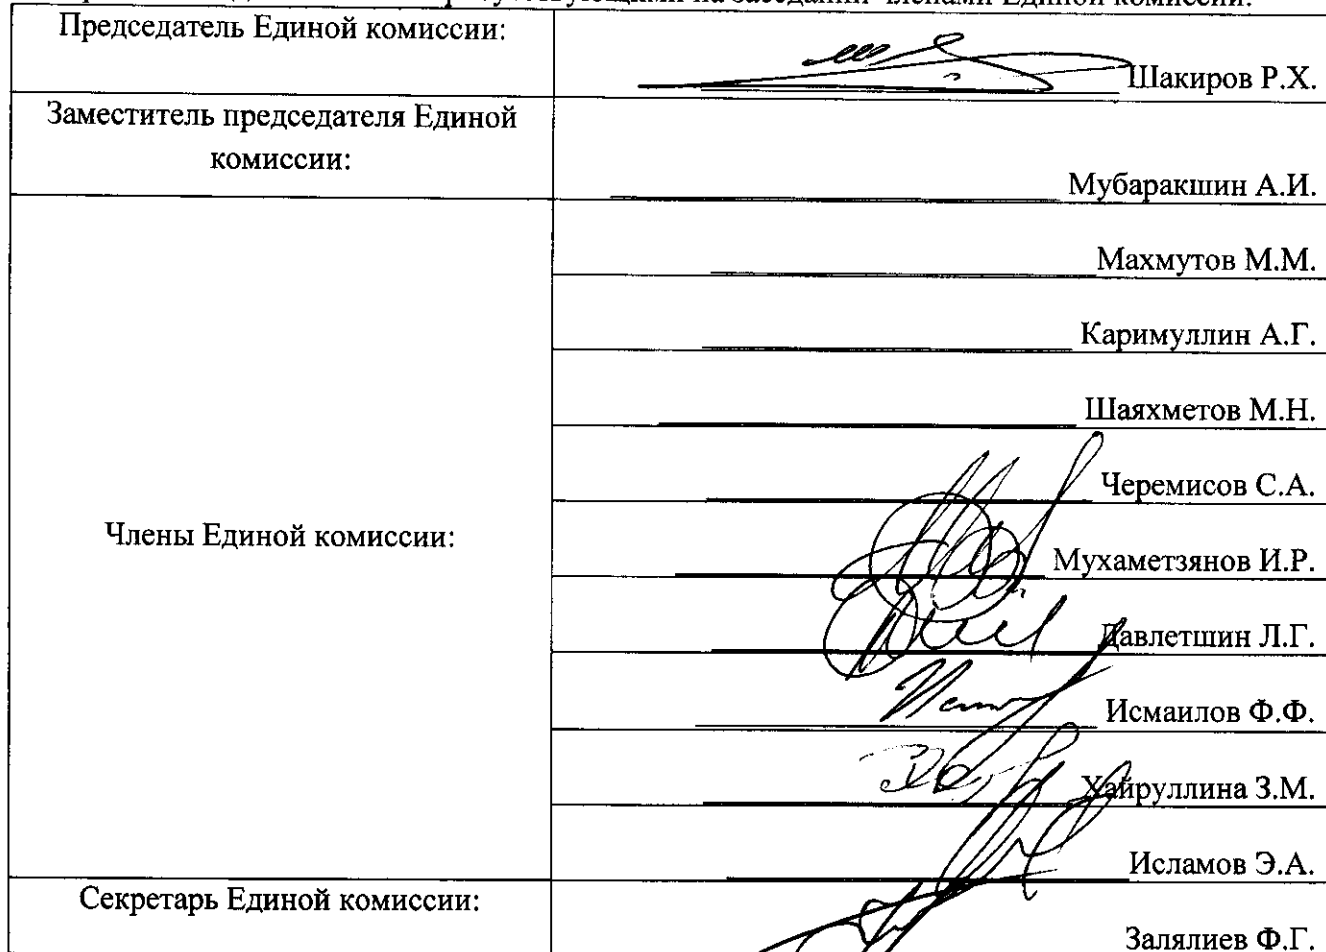 на заседании членами Единой комиссии:
Председатель Единой комиссии:
Шакиров Р.Х.
Заместитель председателя Единой
комиссии:
Мубаракшин А.И.
Члены Единой комиссии:
Махмутов М.М.
Каримуллин А.Г.
Шаяхметов М.Н.
Черемисов С.А.
Мухаметзянов И.Р.
Давлетшин Л.Г.
Исмаилов Ф.Ф.
Хайруллина З.М.
Исламов Э.А.
Секретарь Единой комиссии:
Залялиев Ф.Г.